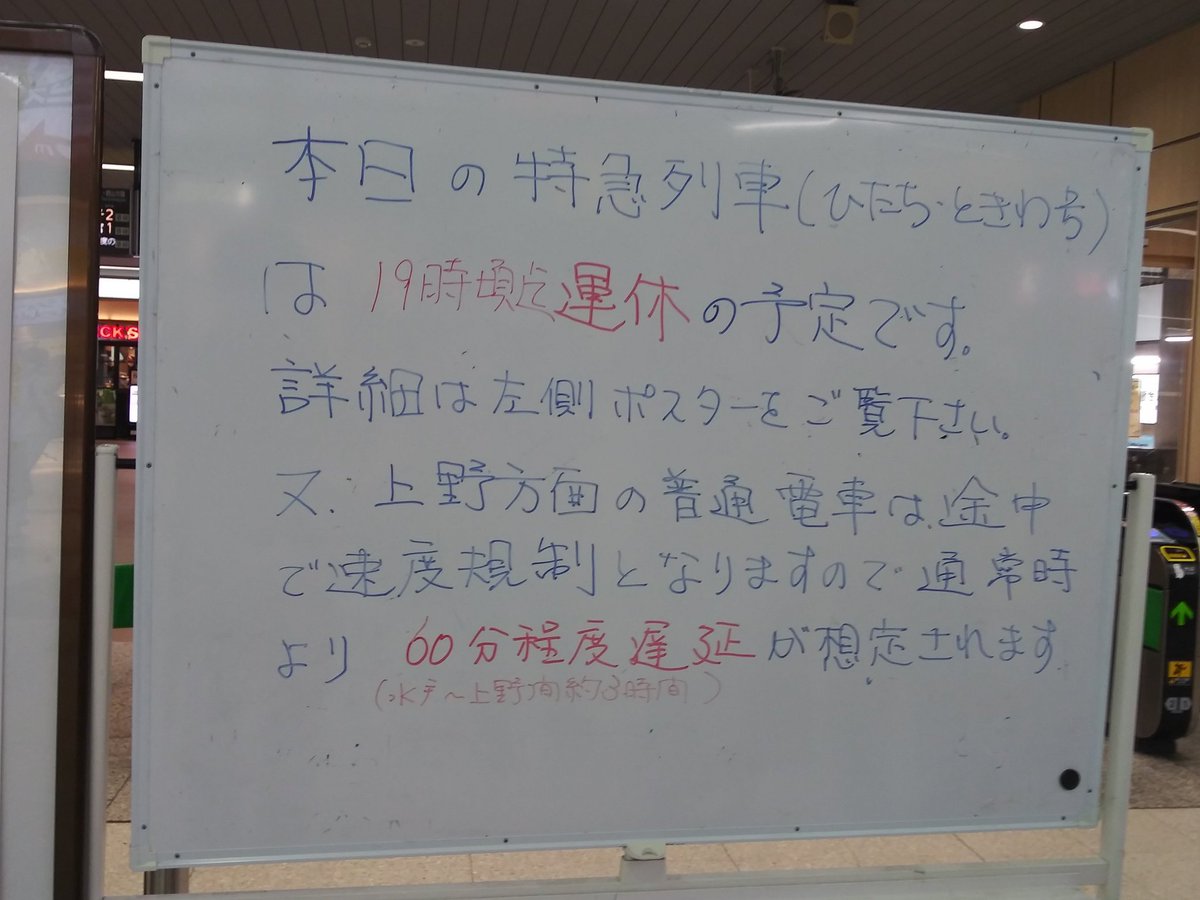 本日の特急列車(ひたち・ときわ号)
は 19時頃迄運休の予定です。
詳細は左側ポスターをご覧下さい。
又、上野方面の普通電車は途中
で速度規制となりますので通常時
より 60分程度遅延が想定されます
(水戸〜上野間約3時間)